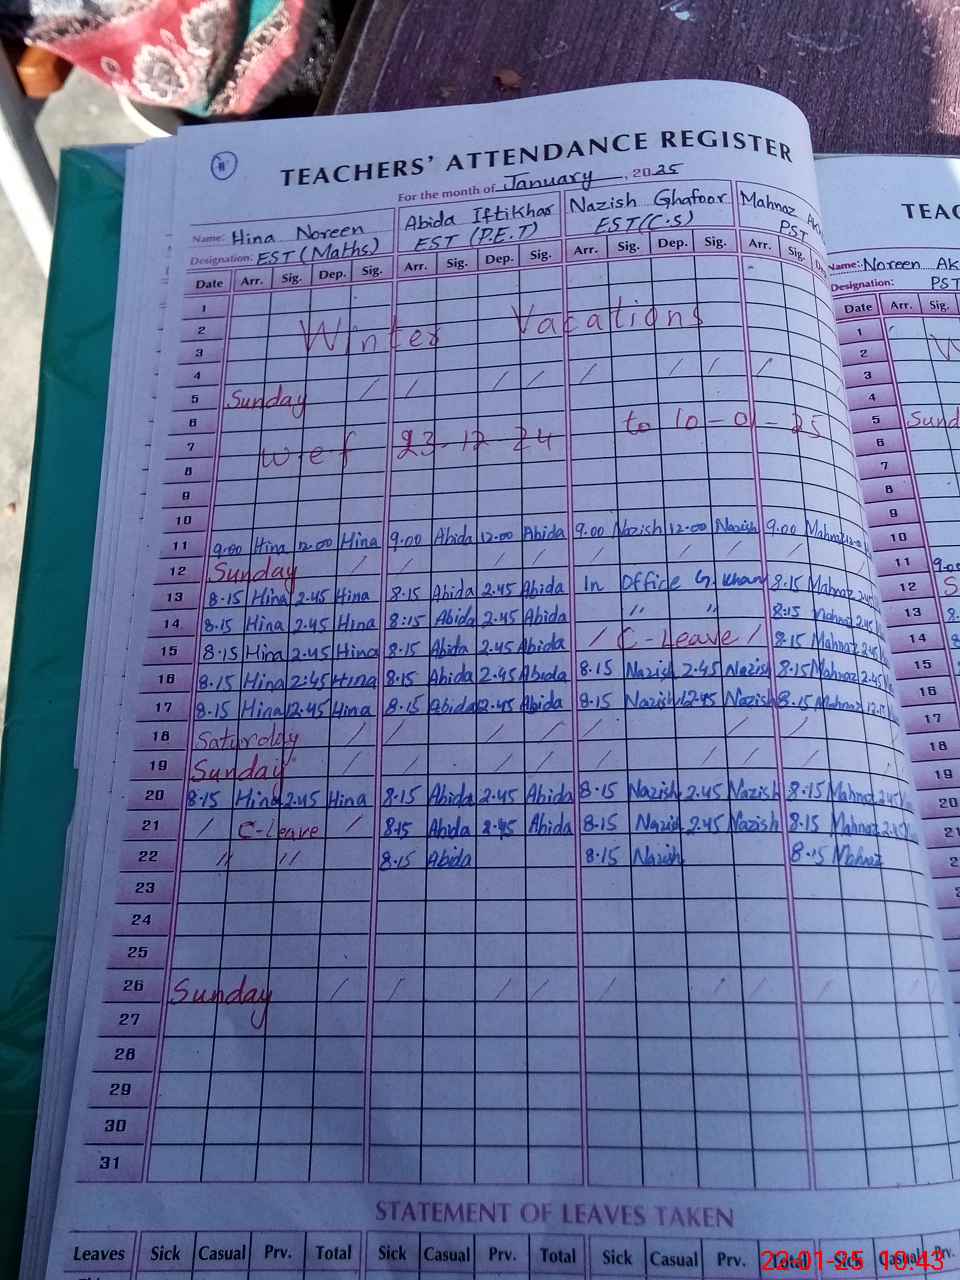 TEACHERS' ATTENDANCE REGISTER
For the month of January, 2025
Name: Hina Noreen Abida Iftikhar Nazish Ghafoor Mahnaz
Designation: EST (Maths) EST (P.E.T) EST (C.S) PST
Date Arr. Sig. Dep. Sig. Arr. Sig. Dep. Sig. Arr. Sig. Dep. Sig. Arr. Sig.
1
2 Winter Vacations
3
4
5 Sunday
6
7 w.e.f 23-12-24 to 10-01-25
8
9
10
11 9.00 Hina 12.00 Hina 9.00 Abida 12.00 Abida 9.00 Nazish 12.00 Nazish 9.00 Mahnaz
12 Sunday
13 8.15 Hina 2.45 Hina 8.15 Abida 2.45 Abida In Office G. Khan 8.15 Mahnaz 2.45
14 8.15 Hina 2.45 Hina 8:15 Abida 2.45 Abida " " 8:15 Mahnaz 2.45
15 8.15 Hina 2.45 Hina 8.15 Abida 2.45 Abida / C-Leave / 8.15 Mahnaz 2.45
16 8.15 Hina 2:45 Hina 8.15 Abida 2.45 Abida 8.15 Nazish 2.45 Nazish 8.15 Mahnaz 2.45
17 8.15 Hina 12.45 Hina 8.15 Abida 2.45 Abida 8.15 Nazish 12.45 Nazish 8.15 Mahnaz
18 Saturday
19 Sunday
20 8.15 Hina 2.45 Hina 8.15 Abida 2.45 Abida 8.15 Nazish 2.45 Nazish 8.15 Mahnaz 2.45
21 / C-leave / 8.15 Abida 2.45 Abida 8.15 Nazish 2.45 Nazish 8.15 Mahnaz 2.45
22 " " 8.15 Abida 8.15 Nazish 8.15 Mahnaz
23
24
25
26 Sunday
27
28
29
30
31
STATEMENT OF LEAVES TAKEN
Leaves Sick Casual Prv. Total Sick Casual Prv. Total Sick Casual Prv. Total Sick Casual Prv.
22-01-25 10:43
Name: Noreen
Designation: PST
Date Arr. Sig.
1
2
3
4
5
6
7
8
9
10
11
12
13
14
15
16
17
18
19
20